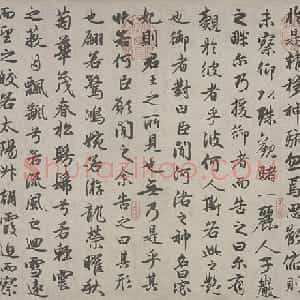 於是精移神駭忽焉思散俯則
未察仰以殊觀睹一麗人于巖
之畔爾乃援御者而告之曰爾有
覿於彼者乎彼何人斯若此之艷
也御者對曰臣聞河洛之神名曰宓
妃則君王之所見也無乃是乎其
狀若何臣願聞之余告之曰其形
也翩若驚鴻婉若游龍榮曜秋
菊華茂春松髣髴兮若輕雲
之蔽月飄颻兮若流風之迴雪遠
而望之皎若太陽升朝霞迫而察
Shufaziliao.com